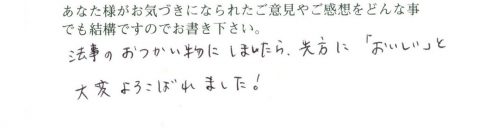 あなた様がお気づきになられたご意見やご感想をどんな事
でも結構ですのでお書き下さい。
法事のおつかい物にしましたら、先方に「おいしい」と
大変よろこばれました！